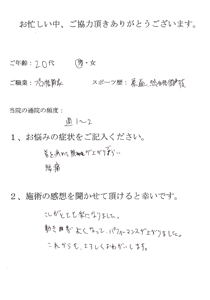 お忙しい中、ご協力頂きありがとうございます。
ご年齢：20代 男・女
ご職業： スポーツ歴：
当院の通院の頻度：
週1〜2
１、お悩みの症状をご記入ください。
腰痛
２、施術の感想を聞かせて頂けると幸いです。
こしがとても楽になりました。
動きが良くなって、パフォーマンスが上がりました。
これからも、よろしくおねがいします。